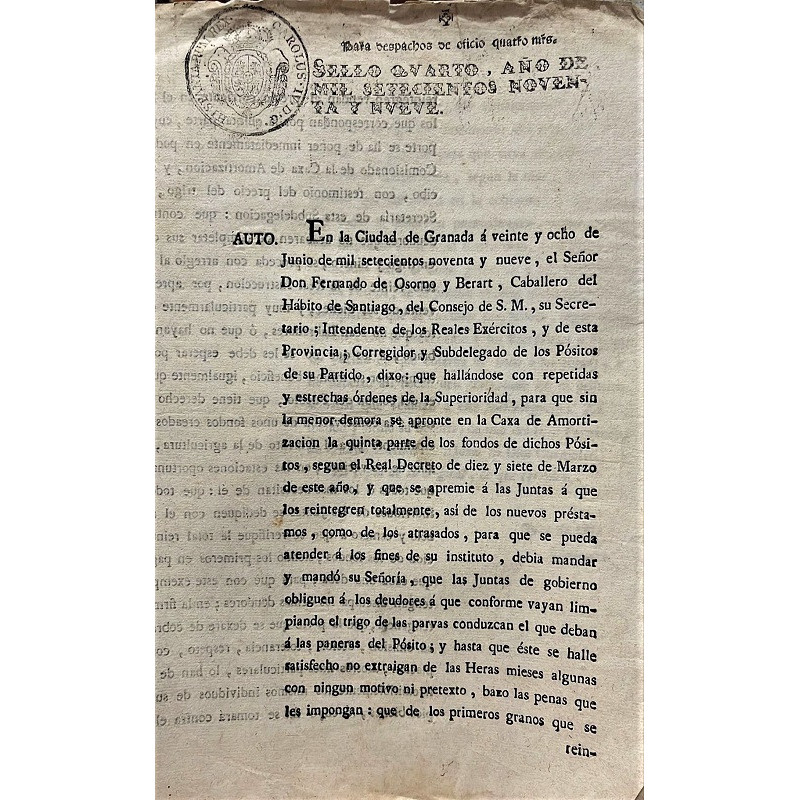 CAROLUS IV D G HISPANIAR REX
Para despachos de oficio quatro mrs.
SELLO QVARTO, AÑO DE
MIL SETECIENTOS NOVEN-
TA Y NVEVE.
AUTO. En la Ciudad de Granada á veinte y ocho de
Junio de mil setecientos noventa y nueve, el Señor
Don Fernando de Osorno y Berart, Caballero del
Hábito de Santiago, del Consejo de S. M., su Secre-
tario; Intendente de los Reales Exércitos, y de esta
Provincia; Corregidor y Subdelegado de los Pósitos
de su Partido, dixo: que hallándose con repetidas
y estrechas órdenes de la Superioridad, para que sin
la menor demora se apronte en la Caxa de Amorti-
zacion la quinta parte de los fondos de dichos Pósi-
tos, segun el Real Decreto de diez y siete de Marzo
de este año, y que se apremie á las Juntas á que
los reintegren totalmente, así de los nuevos présta-
mos, como de los atrasados, para que se pueda
atender á los fines de su instituto, debia mandar
y mandó su Señoría, que las Juntas de gobierno
obliguen á los deudores á que conforme vayan lim-
piando el trigo de las parvas conduzcan el que deban
á las paneras del Pósito; y hasta que éste se halle
satisfecho no extraigan de las Heras mieses algunas
con ningun motivo ni pretexto, baxo las penas que
les impongan: que de los primeros granos que se
rein-